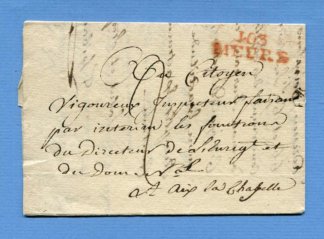 103
MEURS
Citoyen
Vigoureux Inspecteur faisant
par interim les fonctions
du Directeur de l'Enregt et
du Domaine Nal
à Aix la Chapelle